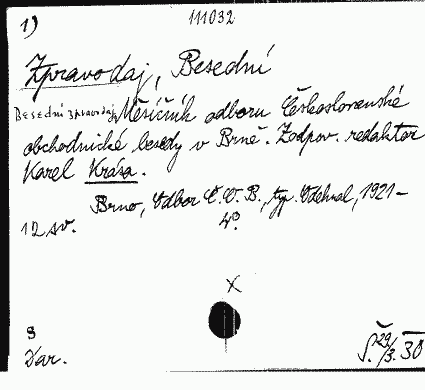 1)
111032
Zpravodaj, Besední
Besední zpravodaj Měsíčník odboru Československé
obchodnické besedy v Brně. Zodpov. redaktor
Karel Krása.
Brno, Odbor Č. O. B., typ. Odehnal, 1921–
12 sv. 4°.
x
Dar.
29/3. 30